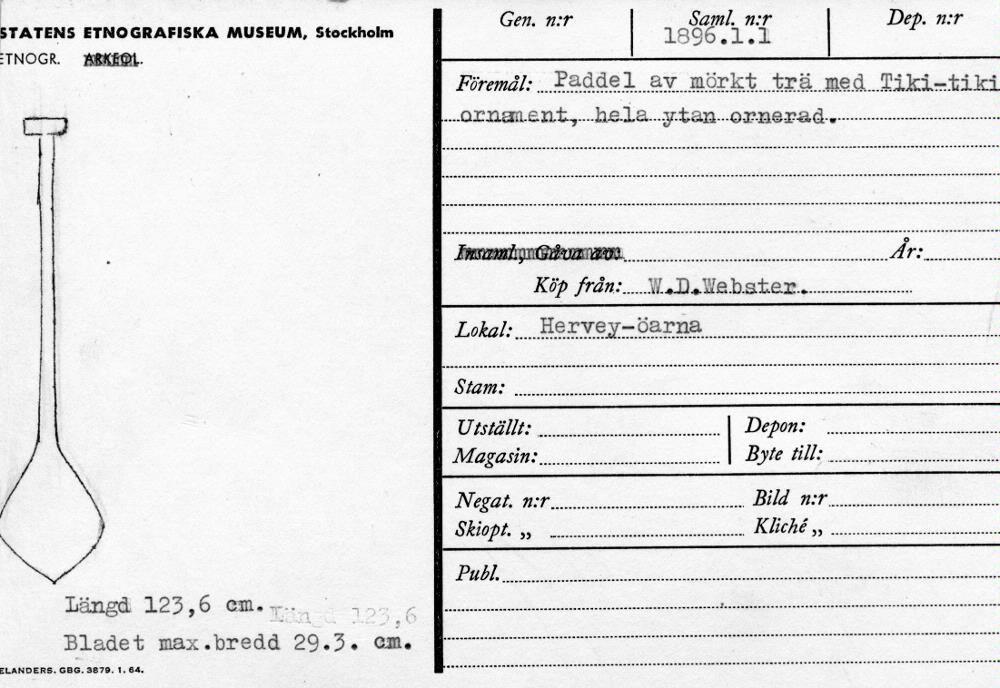 STATENS ETNOGRAFISKA MUSEUM, Stockholm
ETNOGR. ARKEOL.
Längd 123,6 cm. Längd 123,6
Bladet max.bredd 29.3. cm.
ELANDERS. GBG. 3879. 1. 64.
Gen. n:r Saml. n:r Dep. n:r
1896.1.1
Föremål: Paddel av mörkt trä med Tiki-tiki
ornament, hela ytan ornerad.
Insaml., Gåva av: År:
Köp från: W.D.Webster.
Lokal: Hervey-öarna
Stam:
Utställt: Depon:
Magasin: Byte till:
Negat. n:r Bild n:r
Skiopt. „ Kliché „
Publ.